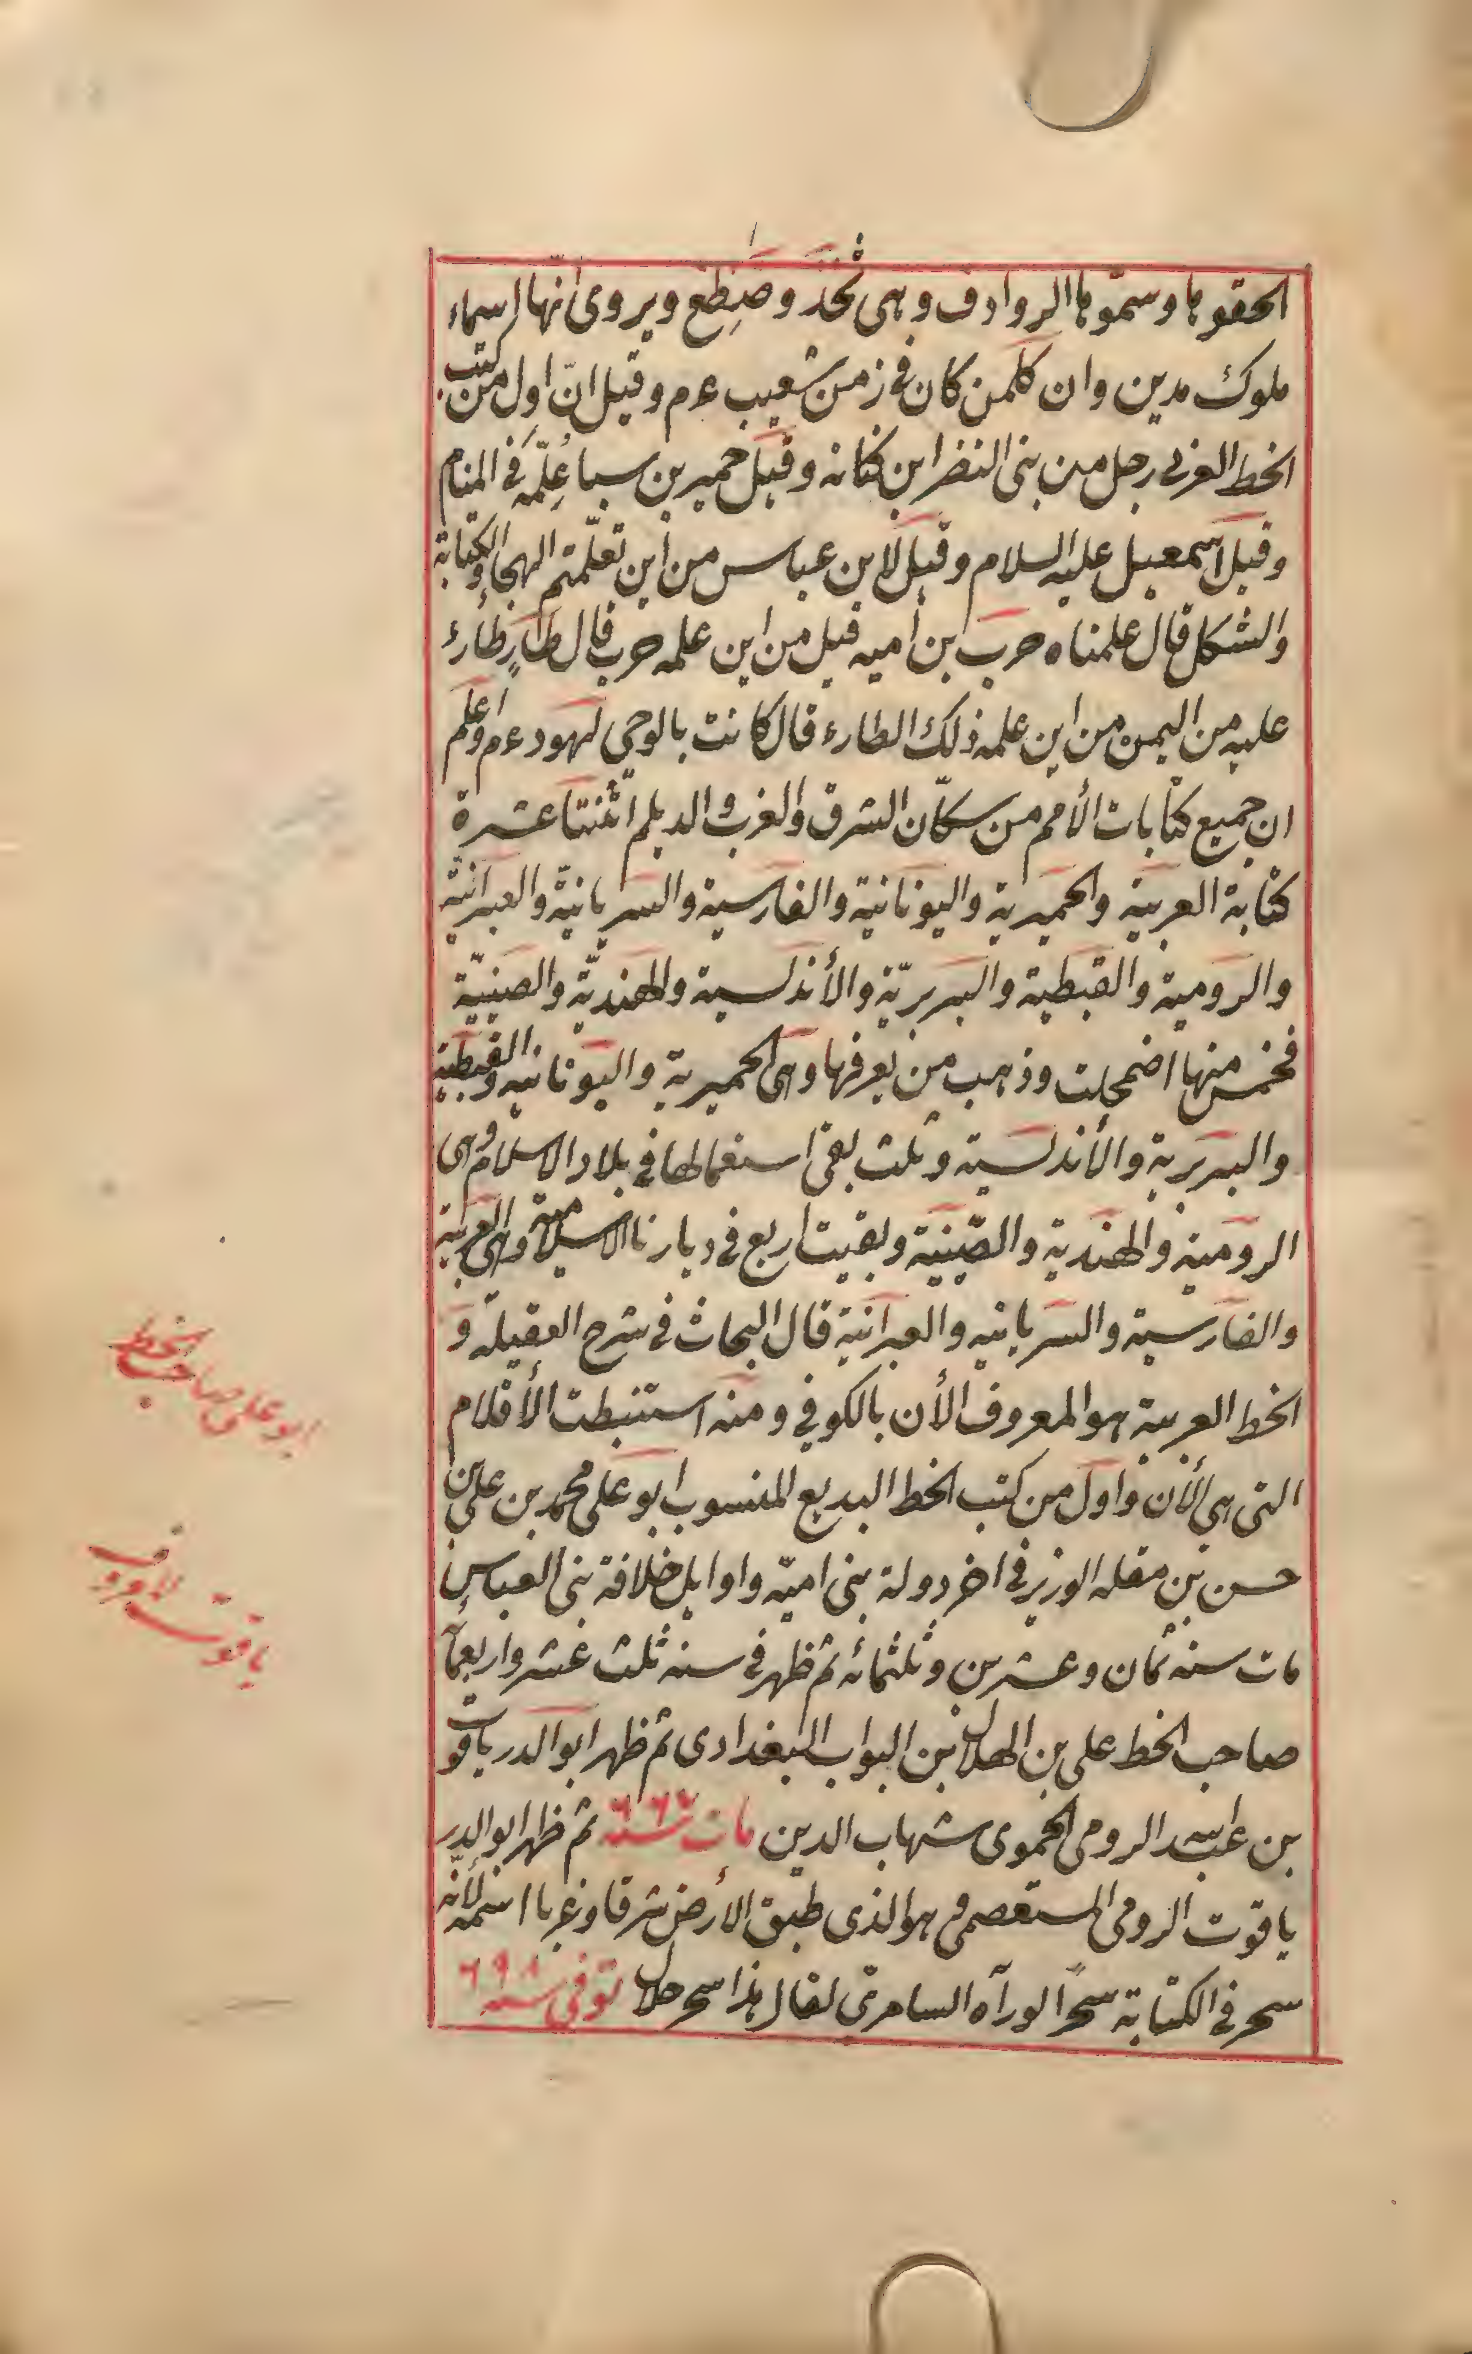 الحقوها وسمّوها الروادف وهى ثخذ وضظغ ويروى أنّها اسماء
ملوك مدين وان كلمن كان فى زمن شعيب عم وقيل انّ اول من كتب
الخط العربى رجل من بنى النضر ابن كنانه وقيل حمير بن سبا عُلِّمه فى المنام
وقيل اسمعيل عليه السلام وقيل لابن عباس من أين تعلّمتم الهجا والكتابة
والشكل قال علمناه حرب بن أميه قيل من اين علمه حرب قال طارٍ طارء
عليه من اليمن من اين علمه ذلك الطارء قال كانت بالوحى لهود عم واعلم
ان جميع كتابات الأمم من سكّان الشرق والغرب والديلم اثنتا عشرة
كتابة العربية والحميرية واليونانية والفارسية والسريانيّة والعبرانيّة
والرومية والقبطية والبربريّة والأندلسية والهنديّة والصينيّة
فخمس منها اضمحلت وذهب من يعرفها وهى الحميرية واليونانيه والقبطية
والبربرية والأندلسية وثلث بقى استعمالها فى بلاد الاسلام وهى
الرومية والهندية والصّينية وبقيت اربع فى ديارنا الاسلامية وهى العربية
والفارسية والسريانيه والعبرانية قال البحاث فى شرح العقيلة و
الخط العربية هو المعروف الأن بالكوفي ومنه استنبطت الأقلام
التى هى الأن واول من كتب الخط البديع المنسوب ابو على محمد بن على بن
حسن بن مقله الوزير فى اخر دولة بنى اميّه واوايل خلافة بنى العباس
مات سنه ثمان وعشرين وثلثمائه ثم ظهر فى سنه ثلث عشر واربعمأ
صاحب الخط على بن الهلال بن البواب البغدادى ثم ظهر ابو الدر ياقوت
بن عبد الله الرومى الحموى شهاب الدين مات سنة ٦٦٧ ثم ظهر ابو الدر
ياقوت الرومى المستعصمى هو الذى طبق الأرض شرقا وغربا اسمه لأنّه
سحر فى الكتابة سحرًا لو رآه السامرى لقال هذا سحر حلال توفى سنه ٦٩٨
ابو على صاحب الخط
ياقوت المعروف